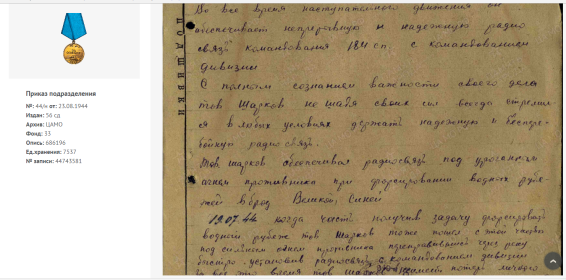 Приказ подразделения
№: 44/н от: 23.08.1944
Издан: 56 сд
Архив: ЦАМО
Фонд: 33
Опись: 686196
Ед.хранения: 7537
№ записи: 44743581
ПОДШИВКИ
Во все время наступательного движения он
обеспечивает непрерывную и надежную радио
связь командования 184 сп. с командованием
дивизии
С полным сознанием важности своего дела
тов Шарков не щадя своих сил всегда стремил-
ся в любых условиях держать надежную и беспере-
бойную радио связь.
Тов Шарков обеспечивал радиосвязь под ураганным
огнем противника при форсировании водных рубе-
жей вброд Великой, Синей
19.07.44 когда часть получив задачу форсировать
водный рубеж тов Шарков тоже пошел с этой
под сильным огнем противника переправившись через реку
быстро установив радиосвязь с командованием дивизии
за все это время тов Шарков не имеет потерь личного